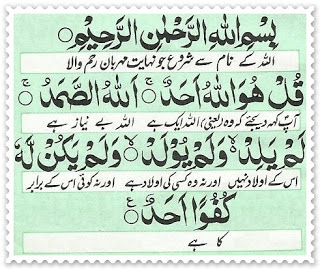 بِسْمِ اللهِ الرَّحْمٰنِ الرَّحِيْمِ ○
اللہ کے نام سے شروع جو نہایت مہربان رحم والا
قُلْ هُوَ اللهُ اَحَدٌ ○ اَللهُ الصَّمَدُ ○
آپ کہہ دیجئے کہ وہ (یعنی) اللہ ایک ہے اللہ بے نیاز ہے
لَمْ يَلِدْ ۙ وَلَمْ يُوْلَدْ ۙ وَلَمْ يَكُنْ لَّهٗ
اس کے اولاد نہیں اور نہ وہ کسی کی اولاد ہے اور نہ کوئی اس کے برابر
كُفُوًا اَحَدٌ ○ ع
کا ہے